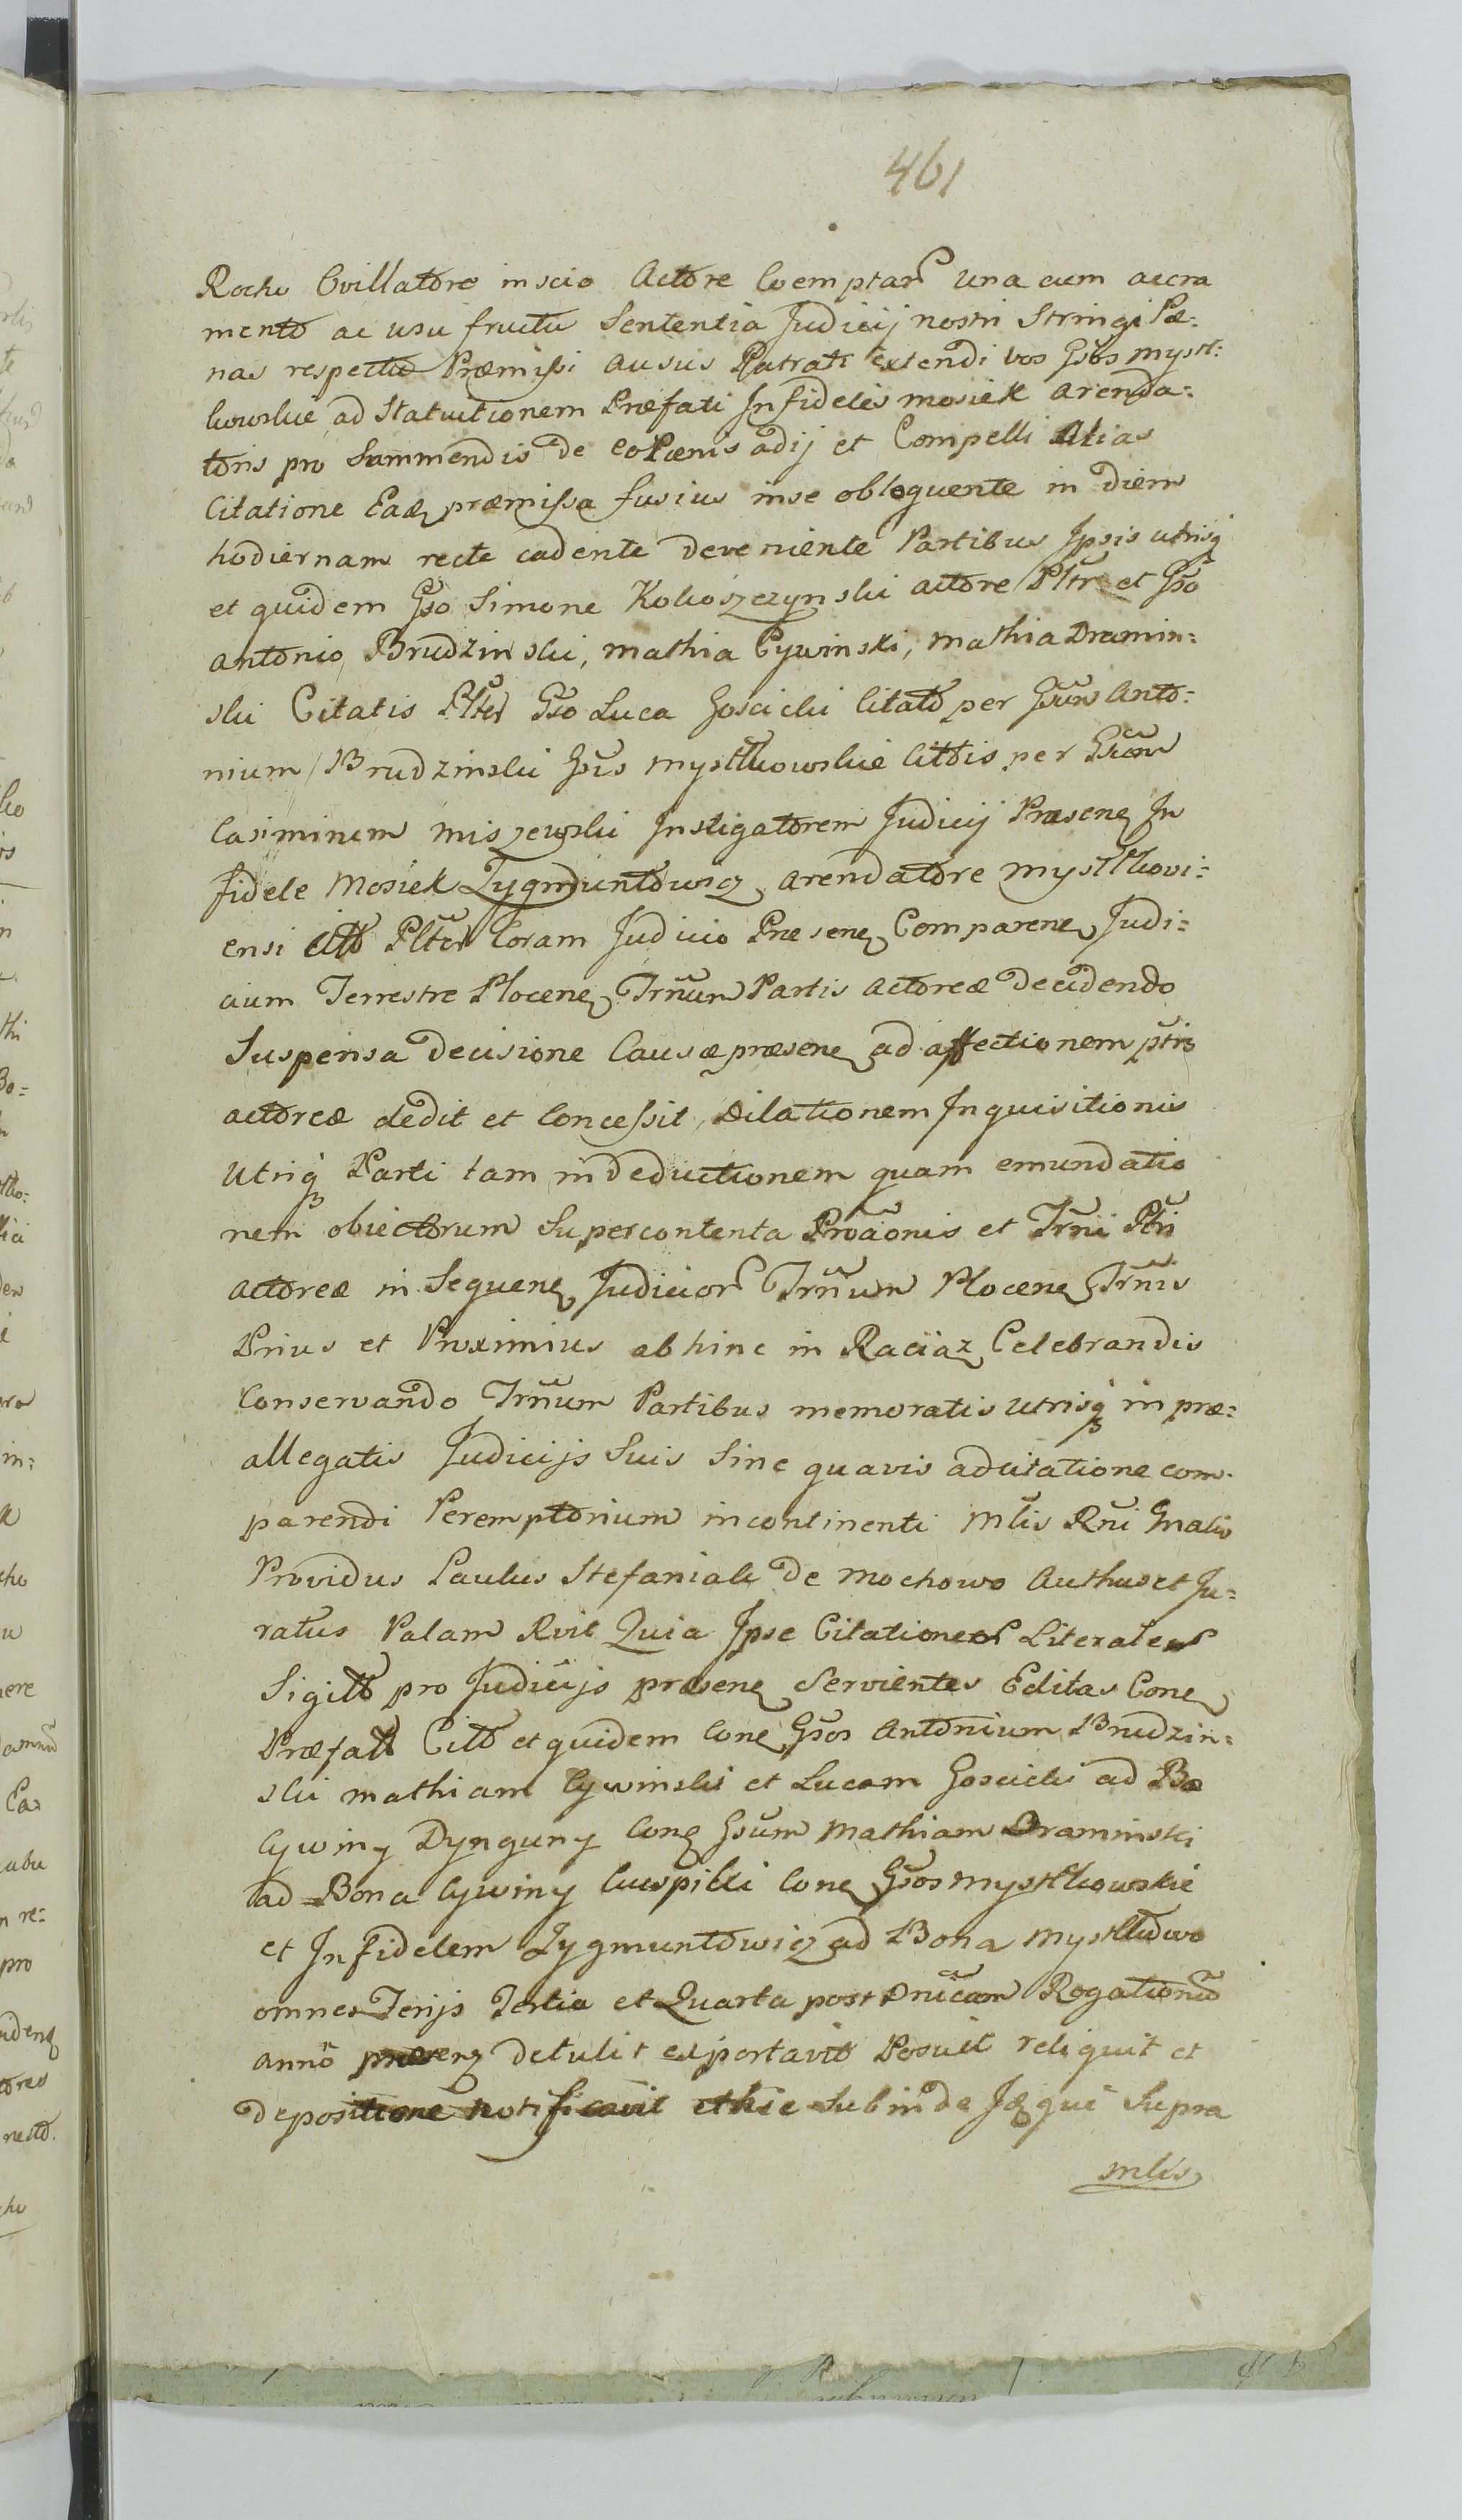 461
Rocho Ovillatore inscio Actore Coemptar Una cum accra
mento ac usu fructu Sententia Judicij nostri Stringi Pæ:
nas respectu Præmissi ausus Patrati extendi vos Gsos Mystk:
kowskie ad Statuitionem Præfati Infidelis Mosiek arenda:
toris pro Summendis de eo Pœnis adij et Compelli Alias
Citatione Eaq præmissa fusius in se obloquente in diem
hodiernam recte cadente deveniente Partibus Ipsis utrisq
et quidem Gso Simone Kokoszczynski actore Pltr et Gso
Antonio Brudzinski, Mathia Cywinski, Mathia Dramin:
ski Citatis Plter Gso Luca Goscicki Citato per Gsum Anto:
nium Brudzinski Gsis Mystkowskie Cittis per Gsum
Casimirum Miszewski Instigatorem Judicij Præsenq In
fidele Mosiek Zygmuntowicz arendatore Mystkovi:
ensi Citto Plter Coram Judicio Præsenq Comparenq Judi:
cium Terrestre Plocenq Trnum Partis Actoreæ decidendo
Suspensa decisione Causæ præsenq ad affectionem ptis
actoreæ dedit et Concessit, Dilationem Inquisitionis
Utriq Parti tam in deductionem quam emundatio
nem obiectorum Supercontenta Proaonis et Trni Ptis
actoreæ in Sequenq Judicior Trnum Plocenq Trnis
Prius et Proximius abhinc in Raciąz Celebrandis
Conservando Trnum Partibus memoratis utrisq in præ:
allegatis Judicijs Suis Sine quavis adcitatione com:
parendi Peremptorium in continenti Mlis Rni Gnalis
Providus Paulus Stefaniak de Mochowo Authus et Ju:
ratus Palam Rvit Quia Ipse Citationes Literales
Sigillo pro Judicijs præsenq Servientes Editas Conq
Præfatt Citto et quidem Conq Gsos Antonium Brudzin:
ski Mathiam Cywinski et Lucam Goscicki ad Ba
Cywiny Dynguny Conq Gsum Mathiam Draminski
ad Bona Cywiny Cuspilki Conq Gsos Mystkowskie
et Infidelem Zygmuntowicz ad Bona Mystkowo
omnes Ferijs Tertia et Quarta post Dnicam Rogationu
anno præsenq detulit exportavit Posuit reliquit et
depositione notificavit et hic Subinde Iq qui Supra
Mlis